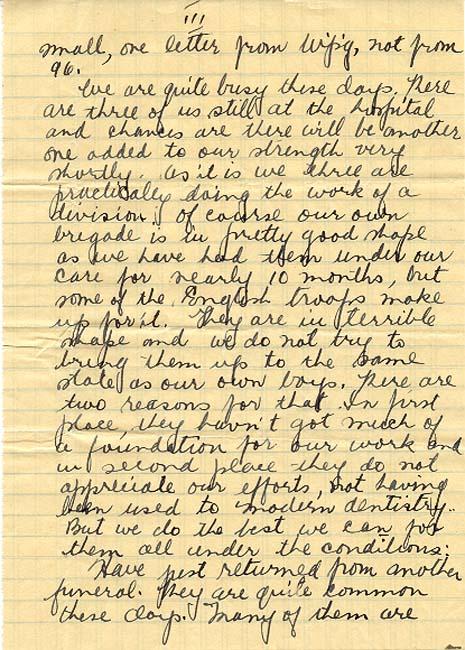 III
small, one letter from Wpg, not from
96.
We are quite busy these days. Here
are three of us still at the hospital
and chances are there will be another
one added to our strength very
shortly. As it is we three are
practically doing the work of a
division. Of course our own
brigade is in pretty good shape
as we have had them under our
care for nearly 10 months, but
some of the English troops make
up for it. They are in terrible
shape and we do not try to
bring them up to the same
state as our own boys. Here are
two reasons for that. In first
place, they havn't got much of
a foundation for our work and
in second place they do not
appreciate our efforts, not having
been used to modern dentistry..
But we do the best we can for
them all under the conditions.
Have just returned from another
funeral. They are quite common
these days. Many of them are